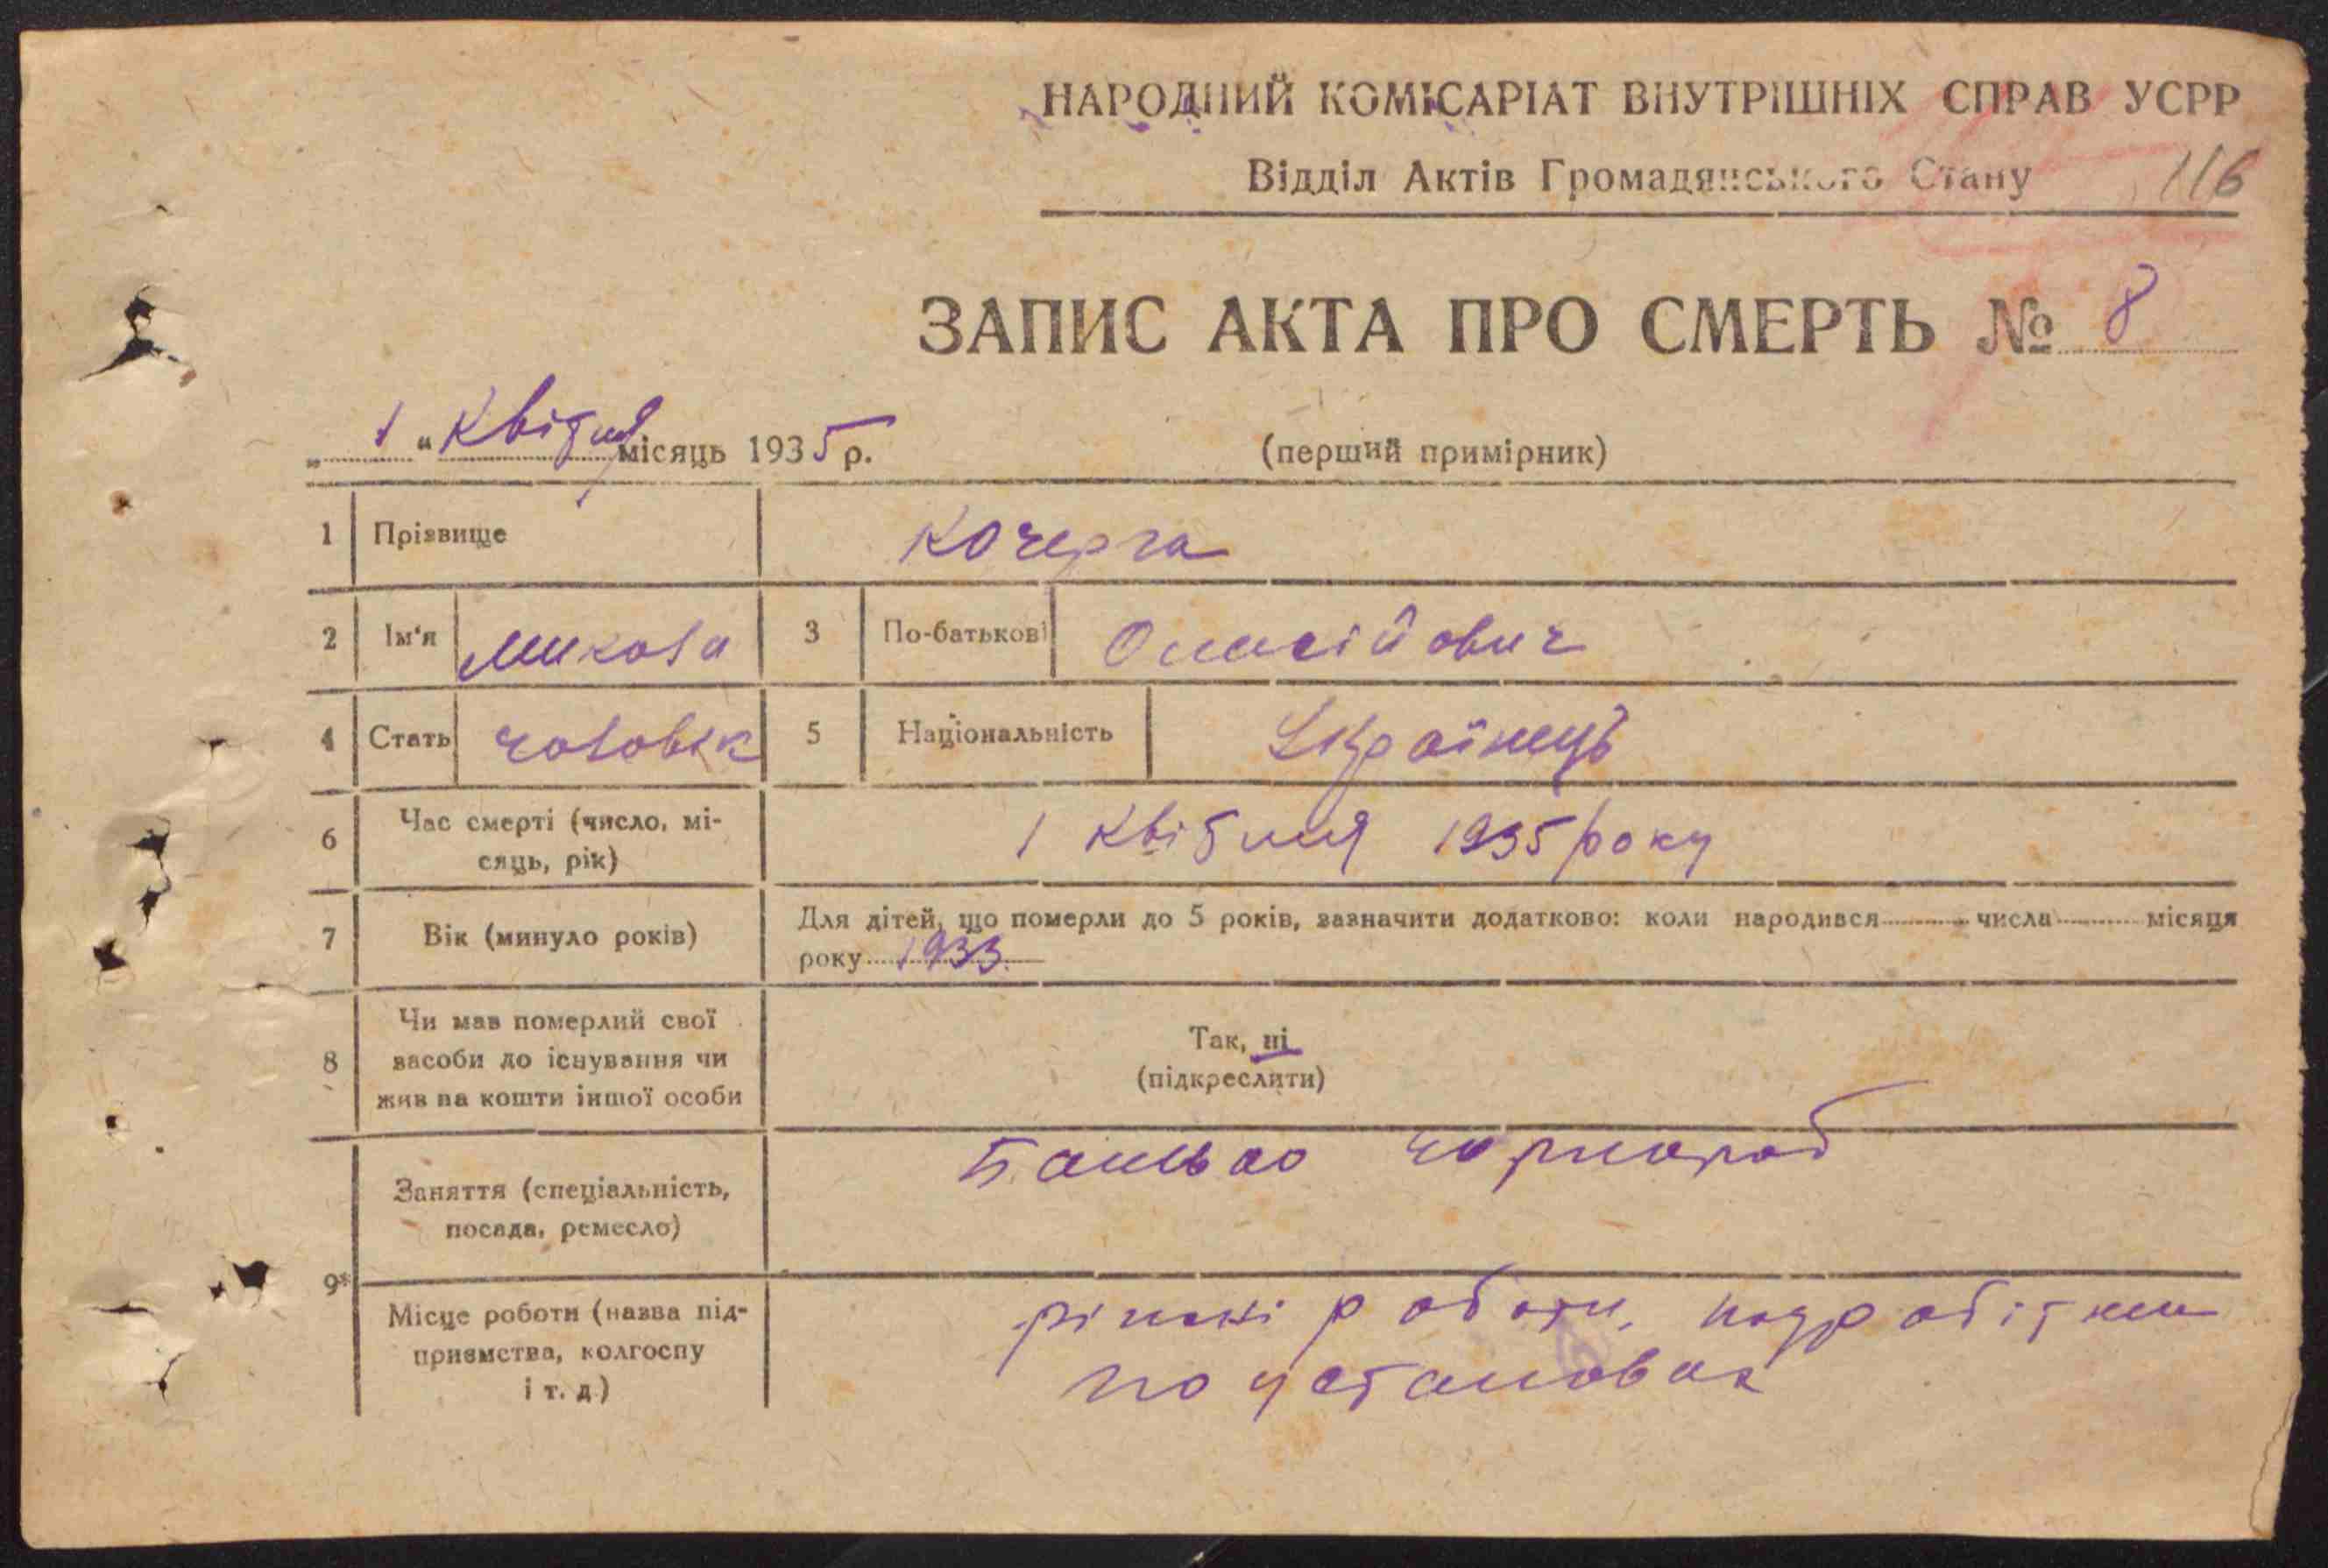 НАРОДНИЙ КОМІСАРІАТ ВНУТРІШНІХ СПРАВ УСРР
Відділ Актів Громадянського Стану 116
ЗАПИС АКТА ПРО СМЕРТЬ № 8
„ 1 “ Квітня місяць 1935 р. (перший примірник)
1 Прізвище Кочерга
2 Ім'я Микола 3 По-батькові
4 Стать чоловік 5 Національність Українець
6 Час смерті (число, мі-
сяць, рік) 1 квітня 1935 року
7 Вік (минуло років) Для дітей, що померли до 5 років, зазначити додатково: коли народився числа місяця
року 1933
8 Чи мав померлий свої
засоби до існування чи
жив на кошти іншої особи
Так, ні
(підкреслити)
9* Заняття (спеціальність,
посада, ремесло) Батько чорнороб
Місце роботи (назва під-
приємства, колгоспу
і т. д.)
роботи, по установах